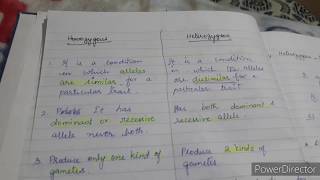 Homozygous
1. It is a condition
in which alleles
are similar for a
particular trait.
2. It has
dominant or recessive
allele never both
3. Produce only one kind of
gametes.
Heterozygous
It is a condition
in which the alleles
are dissimilar for a
particular trait.
Has both dominant &
recessive allele.
Produce 2 kinds of
gametes.
PowerDirector